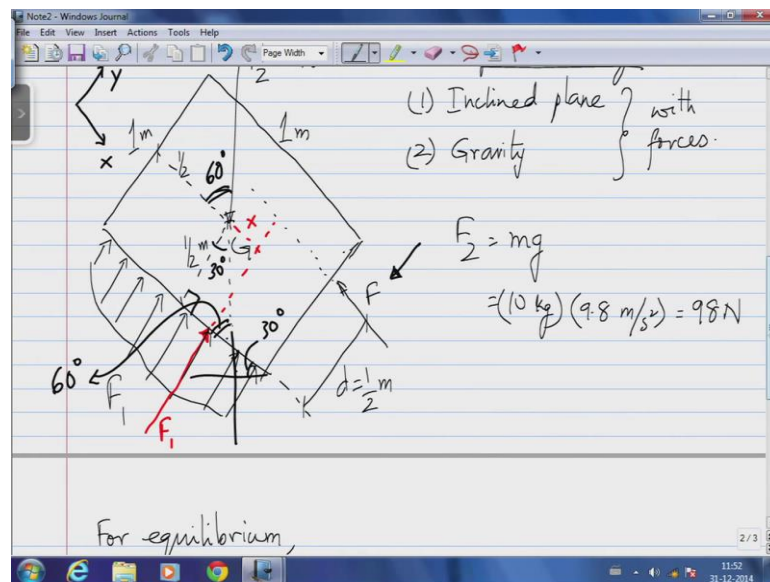 Note2 - Windows Journal
File Edit View Insert Actions Tools Help
Page Width
Y
X
2
1m
1m
1/2
60°
x
1/2 m
G
30°
30°
60°
F
F1
F1
d = 1/2 m
(1) Inclined plane
(2) Gravity
} with forces.
F2 = mg
= (10 kg) (9.8 m/s²) = 98 N
For equilibrium,
2 / 3
11:52
31-12-2014